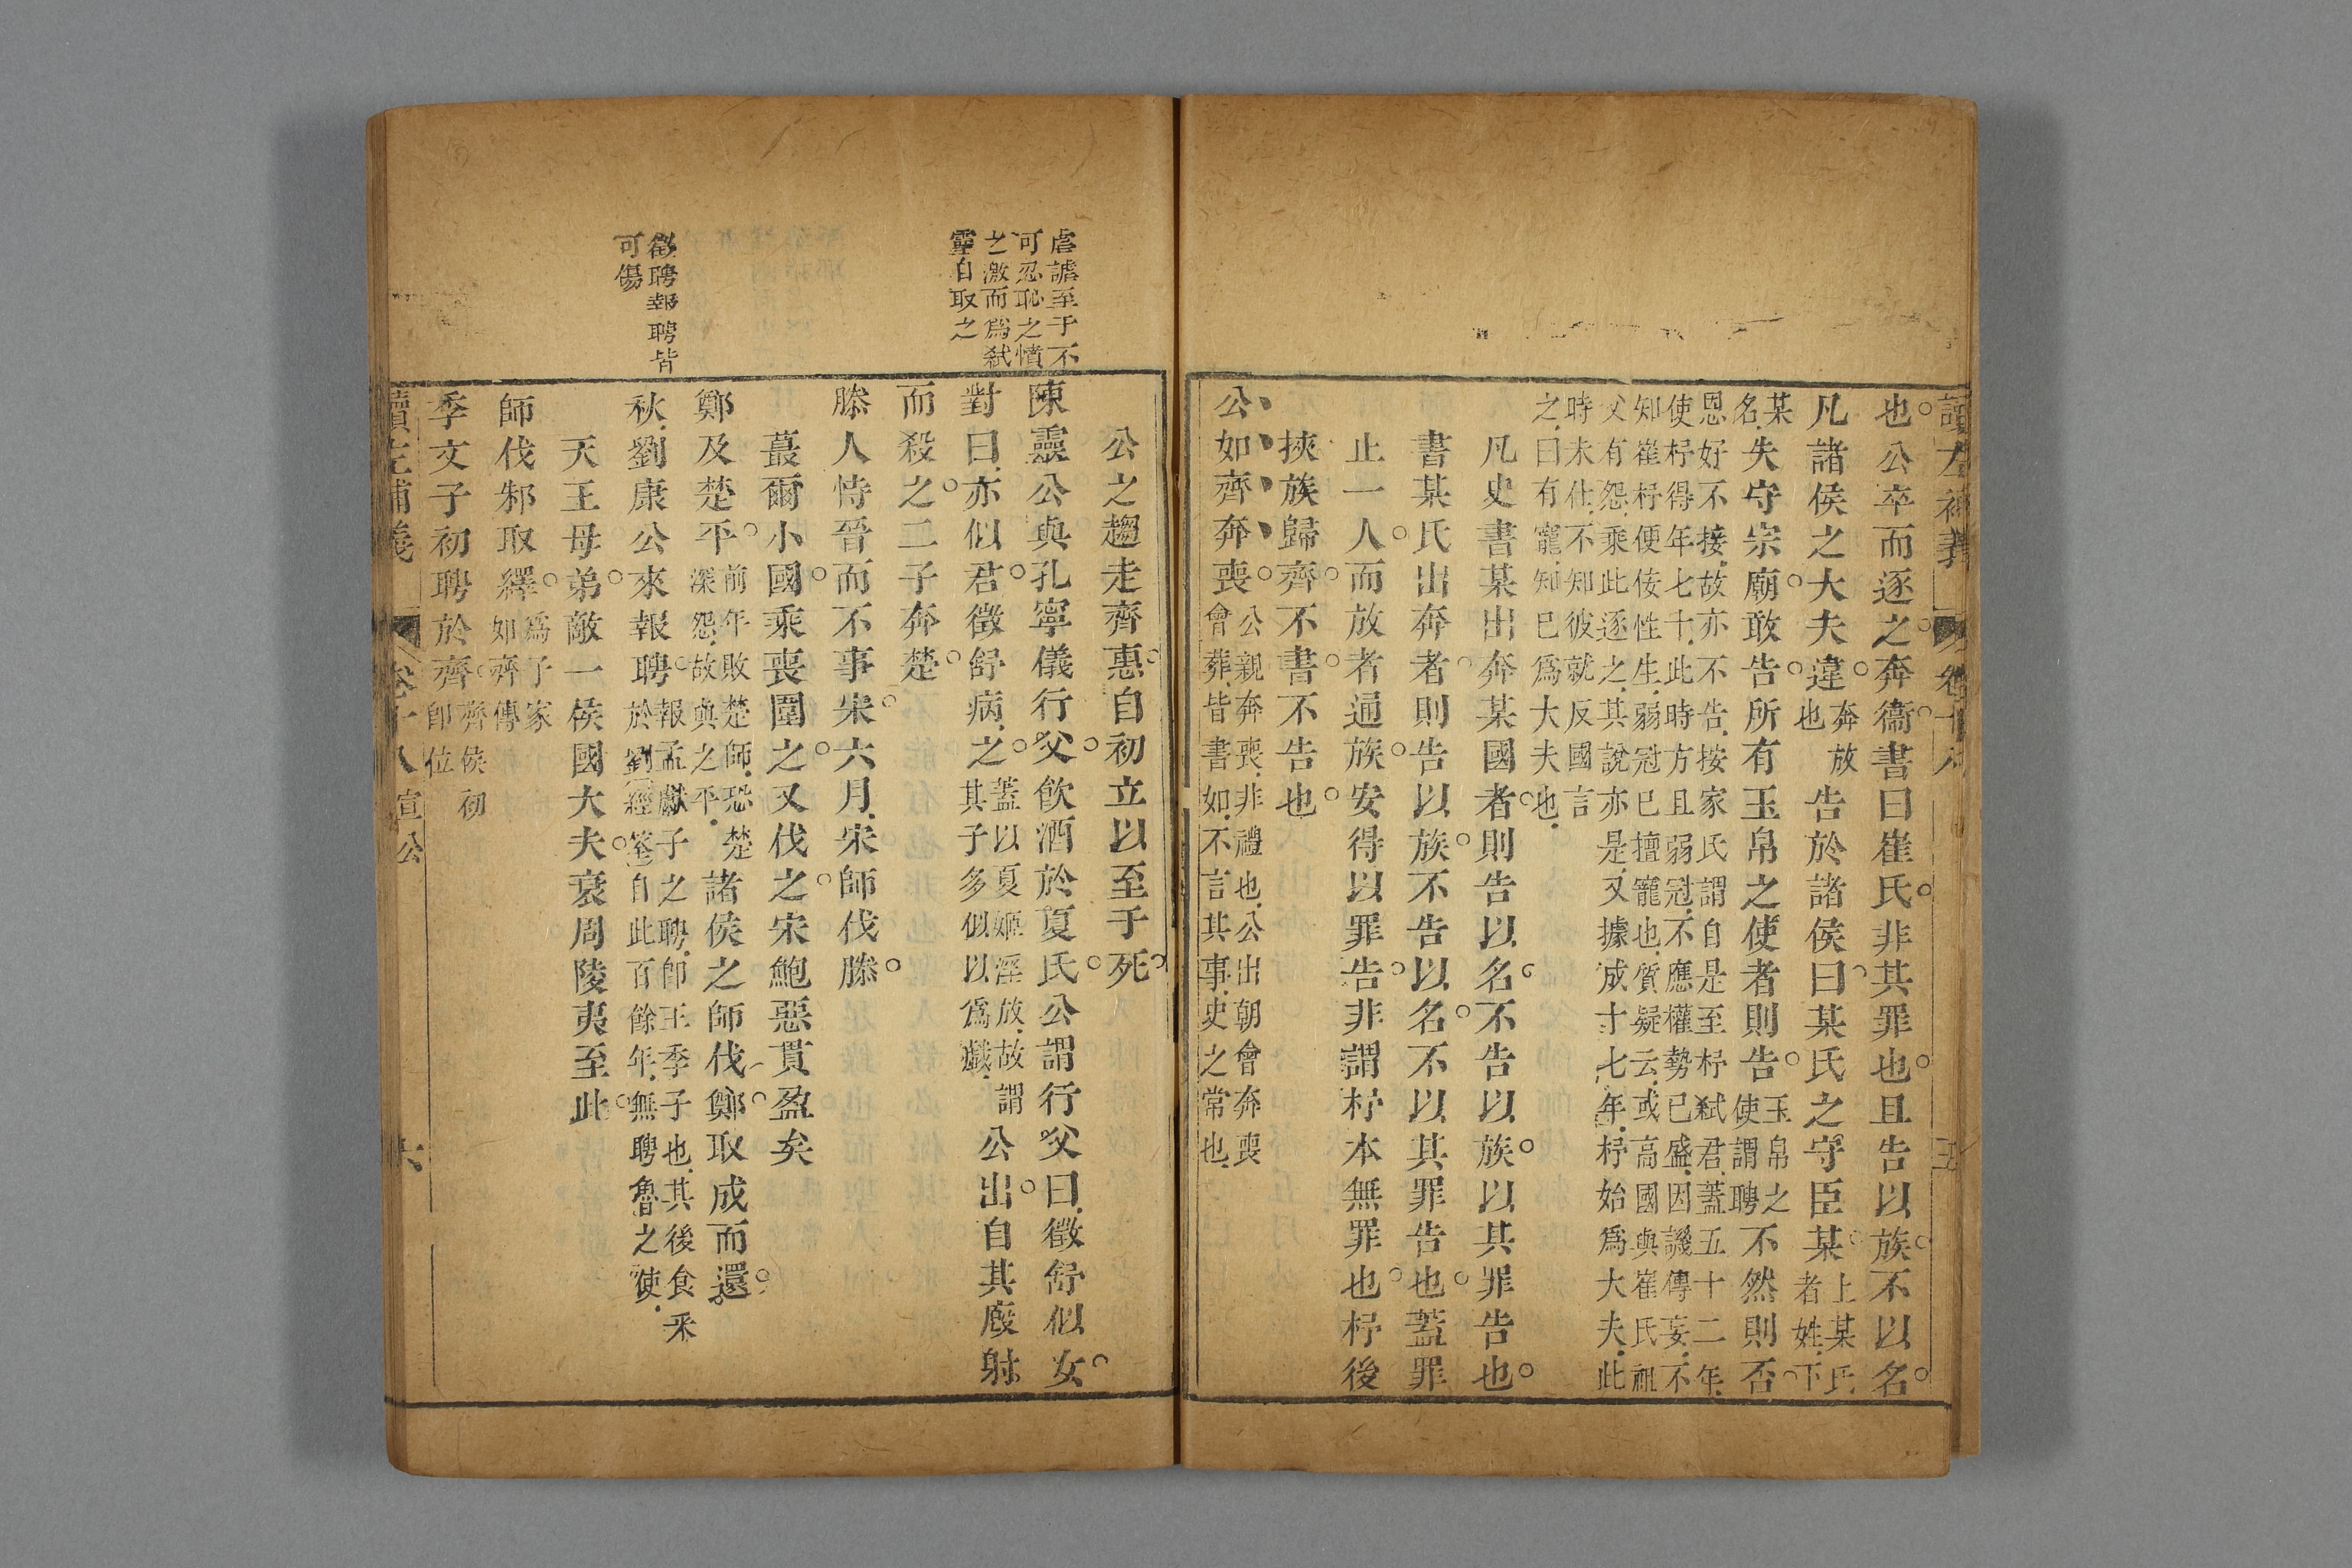 讀左補義 卷十八 五
也公卒而逐之奔衞書曰崔氏非其罪也且告以族不以名
凡諸侯之大夫違奔放也告於諸侯曰某氏之守臣某上某氏者姓下
某名失守宗廟敢告所有玉帛之使者則告玉帛之使謂聘不然則否
恩好不接故亦不告按家氏謂自是至杼弑君蓋五十二年
使杼得年七十此時方且弱冠不應權勢已盛因譏傳妄不
知崔杼便佞性生弱冠已擅寵也質疑云或高國與崔氏祖
父有怨乘此逐之其說亦是又據成十七年杼始爲大夫此
時未仕不知彼就反國言
之曰有寵知已爲大夫也
凡史書某出奔某國者則告以名不告以族以其罪告也
書某氏出奔者則告以族不告以名不以其罪告也蓋罪
止一人而放者通族安得以罪告非謂杼本無罪也杼後
挾族歸齊不書不告也
公如齊奔喪公親奔喪非禮也公出朝會奔喪會葬皆書如不言其事史之常也
虐謔至于不
可忍恥之憤
之激而爲弑
靈自取之
公之趨走齊惠自初立以至于死
陳靈公與孔寧儀行父飲酒於夏氏公謂行父曰徵舒似女
對曰亦似君徵舒病之蓋以夏姬淫放故謂其子多似以爲戲公出自其廄射
而殺之二子奔楚
滕人恃晉而不事宋六月宋師伐滕
蕞爾小國乘喪圍之又伐之宋鮑惡貫盈矣
徵聘報聘皆
可傷
鄭及楚平前年敗楚師恐楚深怨故與之平諸侯之師伐鄭取成而還
秋劉康公來報聘報孟獻子之聘卽王季子也其後食采於劉經筌自此百餘年無聘魯之使
天王母弟敵一侯國大夫衰周陵夷至此
師伐邾取繹爲子家如齊傳
季文子初聘於齊齊侯初卽位
讀左補義 卷十八 宣公 六